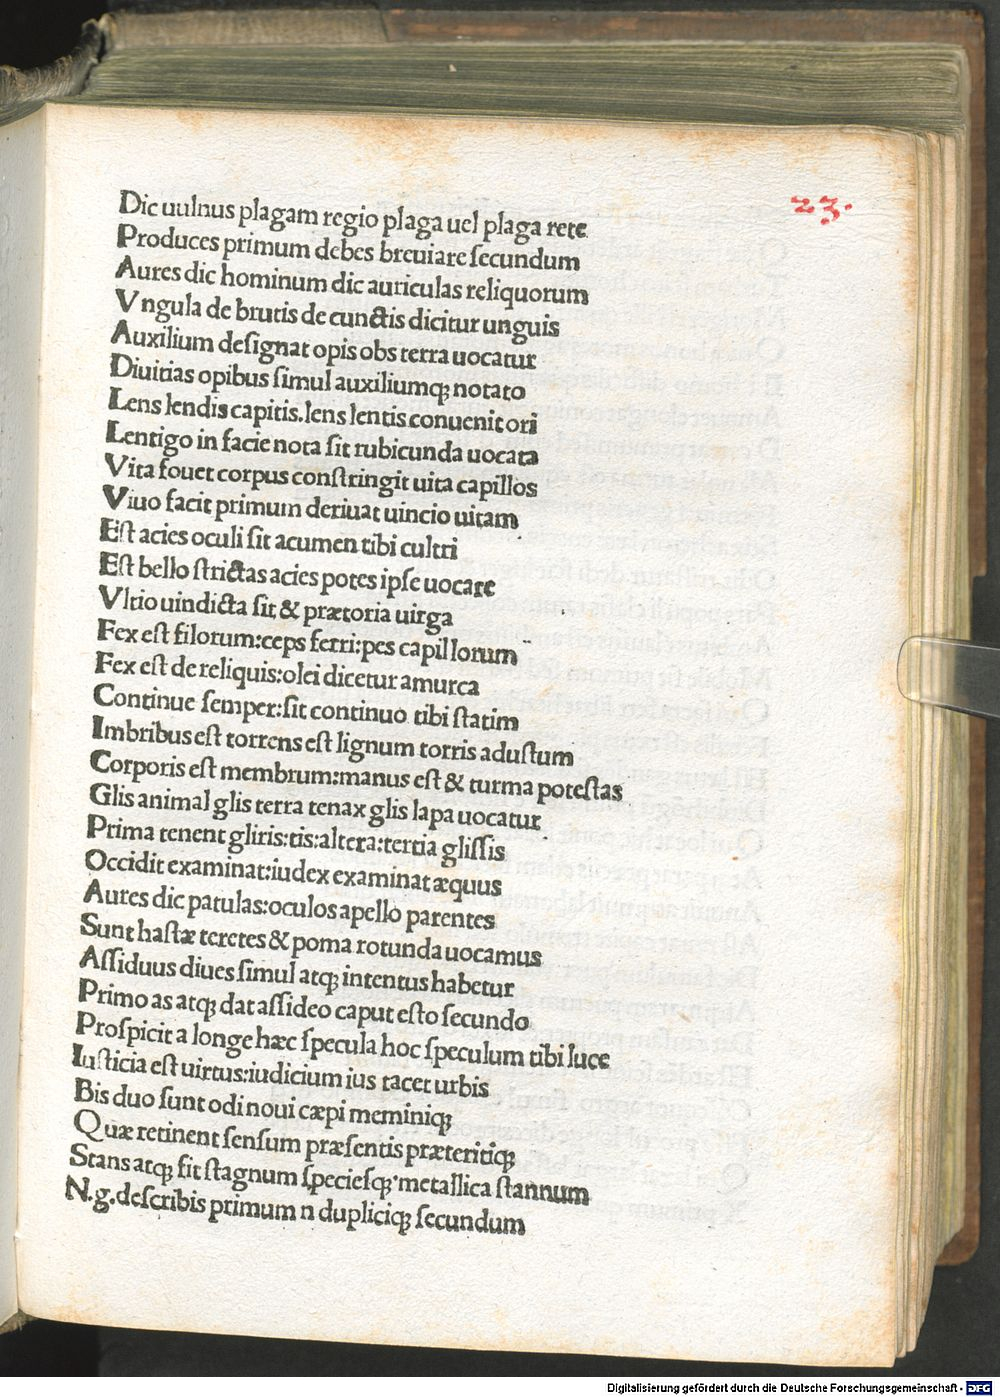 23.
Dic uulnus plagam regio plaga uel plaga rete
Produces primum debes breuiare ſecundum
Aures dic hominum dic auriculas reliquorum
Vngula de brutis de cunctis dicitur unguis
Auxilium deſignat opis obs terra uocatur
Diuitias opibus ſimul auxiliumqꝫ notato
Lens lendis capitis.lens lentis conuenit ori
Lentigo in facie nota ſit rubicunda uocata
Vita fouet corpus conſtringit uita capillos
Viuo facit primum deriuat uincio uitam
Eſt acies oculi ſit acumen tibi cultri
Eſt bello ſtrictas acies potes ipſe uocare
Vltio uindicta ſit & prætoria uirga
Fex eſt filorum:ceps ferri:pes capillorum
Fex eſt de reliquis:olei dicetur amurca
Continue ſemper:ſit continuo tibi ſtatim
Imbribus eſt torrens eſt lignum torris aduſtum
Corporis eſt membrum:manus eſt & turma poteſtas
Glis animal glis terra tenax glis lapa uocatur
Prima tenent gliris:tis:altera:tertia gliſſis
Occidit examinat:iudex examinat æquus
Aures dic patulas:oculos apello parentes
Sunt haſtæ teretes & poma rotunda uocamus
Aſſiduus diues ſimul atqꝫ intentus habetur
Primo as atqꝫ dat aſſideo caput eſto ſecundo
Proſpicit a longe hæc ſpecula hoc ſpeculum tibi luce
Iuſticia eſt uirtus:iudicium ius tacet urbis
Bis duo ſunt odi noui cæpi meminiqꝫ
Quæ retinent ſenſum præſentis præteritiqꝫ
Stans atqꝫ fit ſtagnum ſpecieſqꝫ metallica ſtannum
N.g.deſcribis primum n dupliciqꝫ ſecundum
Digitalisierung gefördert durch die Deutsche Forschungsgemeinschaft - DFG